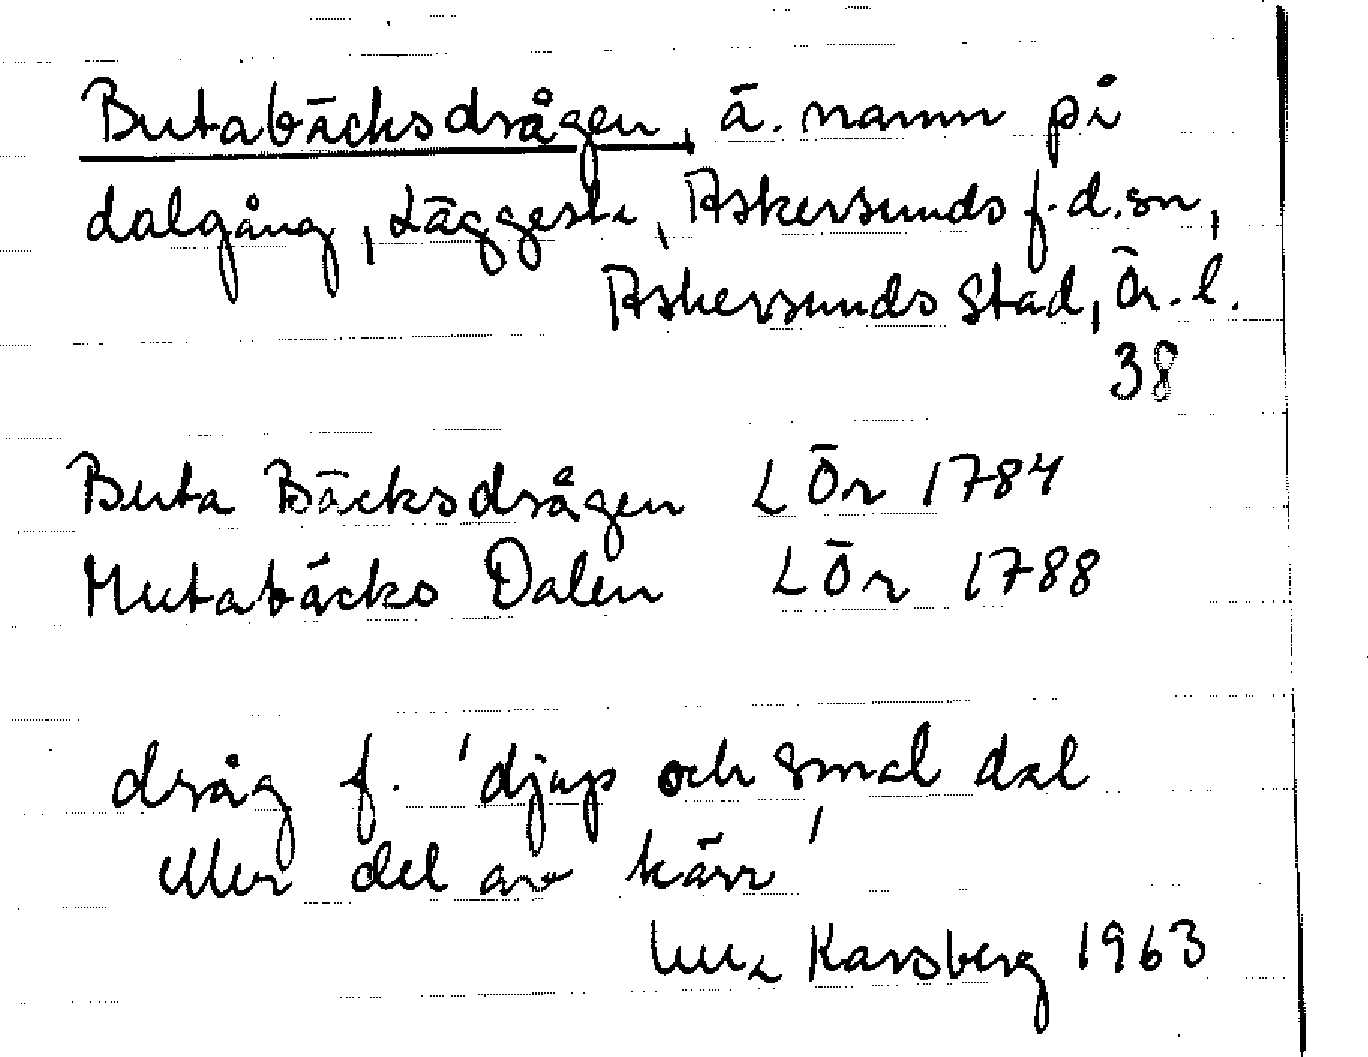 Butabäcksdrågen, ä. namn på
dalgång, Läggesta, Askersunds f.d. sn,
Askersunds stad, Ör. l.
38
Buta Bäcksdrågen LÖr 1784
Mutabäcks Dalen LÖr 1788
dråg f. 'djup och smal dal
eller del av kärr'
Karsberg 1963